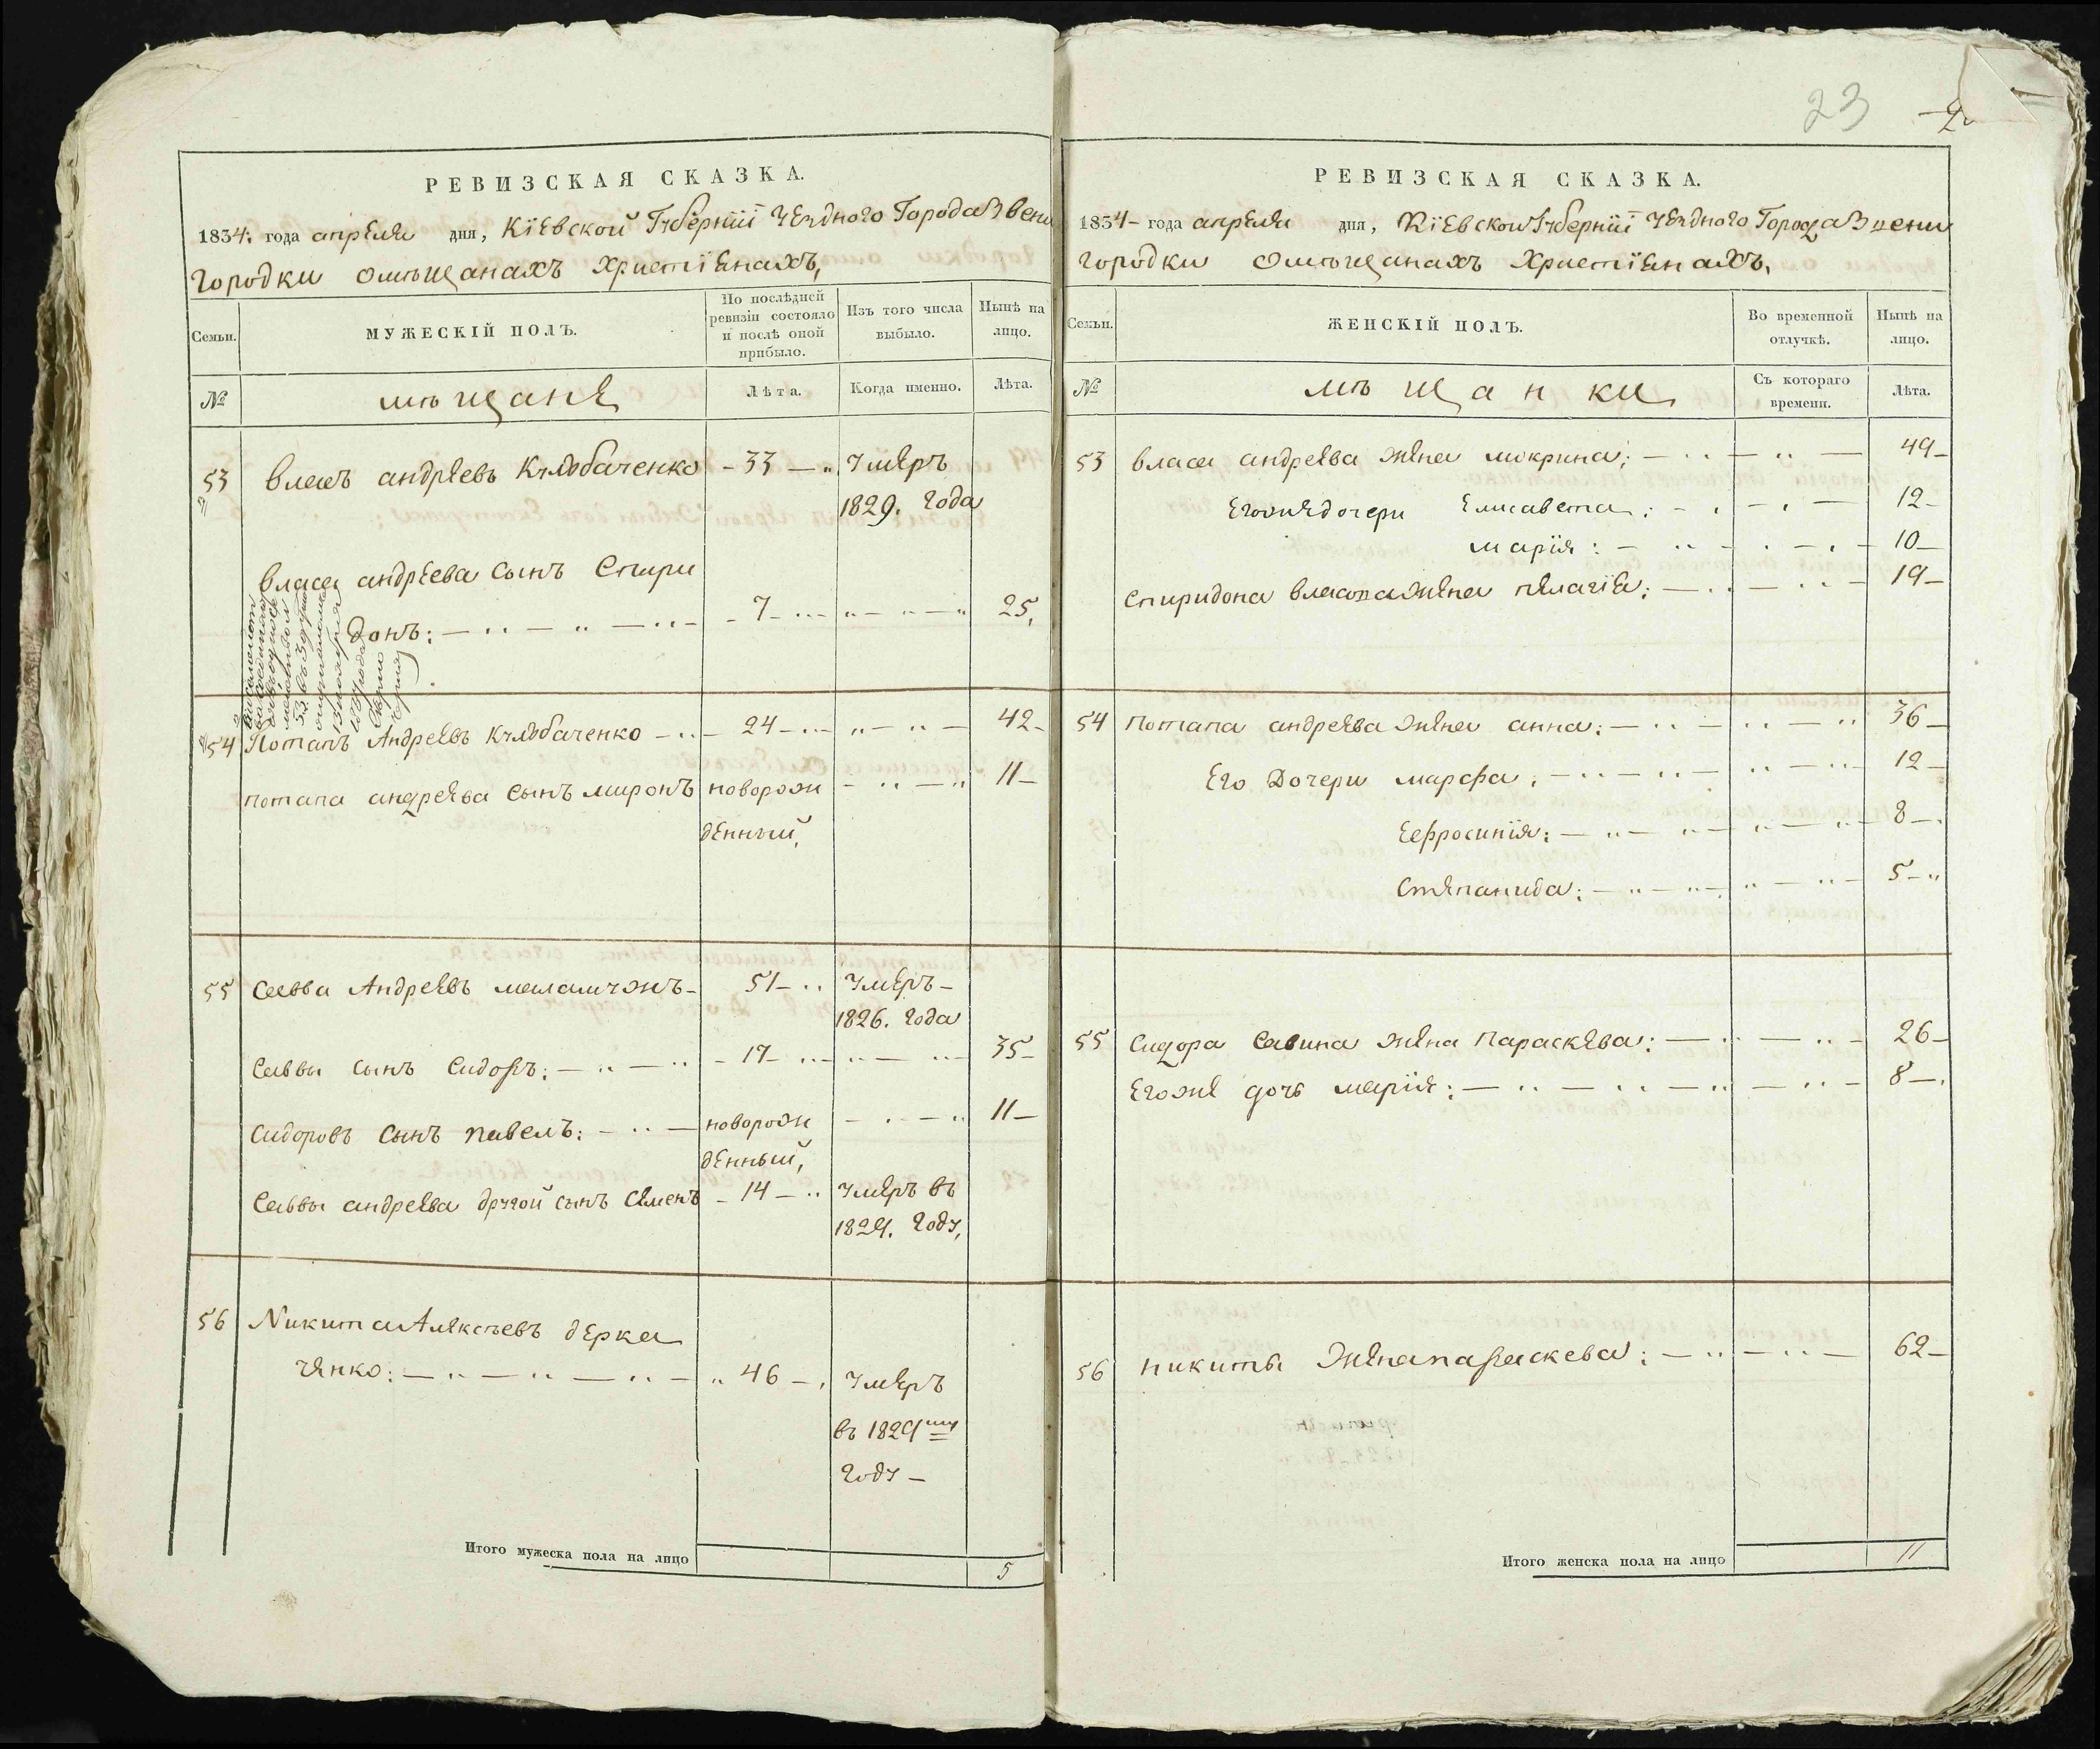 23
РЕВИЗСКАЯ СКАЗКА.
1834. года апреля дня, Кіевской Губерніи Уездного Города Звени
городки о мѣщанахъ христіенахъ,
Семьи.
МУЖЕСКІЙ ПОЛЪ.
По послѣдней ревизіи состояло и послѣ оной прибыло.
Изъ того числа выбыло.
Нынѣ на лицо.
№
мѣщане
Лѣта.
Когда именно.
Лѣта.
53 Власъ андреевъ - 33 - умеръ
1829. года
Власа андреева сынъ Спири
донъ: - 7 - 25,
54 Потапъ Андреевъ - 24 - 42 -
потапа андреева сынъ миронъ новорож - 11 -
денный,
55 Савва Андреевъ 51 - умеръ -
1826. года
Саввы сынъ Сидоръ: - 17 - 35 -
Сидоровъ сынъ павелъ: - новорож - 11 -
денный,
Саввы андреева другой сынъ Семенъ - 14 - умеръ въ
1829. году,
56 Никита Алексѣевъ дерка
ченко: - 46 - умеръ
въ 1829му
году -
Итого мужеска пола на лицо 5
РЕВИЗСКАЯ СКАЗКА.
1834 - года апреля дня, Кіевской Губерніи Уездного Города Звени
городки о мѣщанахъ христіенахъ,
Семьи.
ЖЕНСКІЙ ПОЛЪ.
Во временной отлучкѣ.
Нынѣ на лицо.
№
мѣщанки
Съ котораго времени.
Лѣта.
53 власа андреева жена мокрина; - 49 -
Его же дочери Елисавета: - 12 -
марія: - 10 -
Спиридона власова жена пелагіе; - 19 -
54 Потапа андреева жена анна: - 36 -
Его Дочери марфа: - 12 -
Ефросинія: - 8 -
Степанида: - 5 -
55 Сидора Савина жена Параскева: - 26 -
Его же дочь марія: - 8 -
56 никиты жена параскева: - 62 -
Итого женска пола на лицо 11